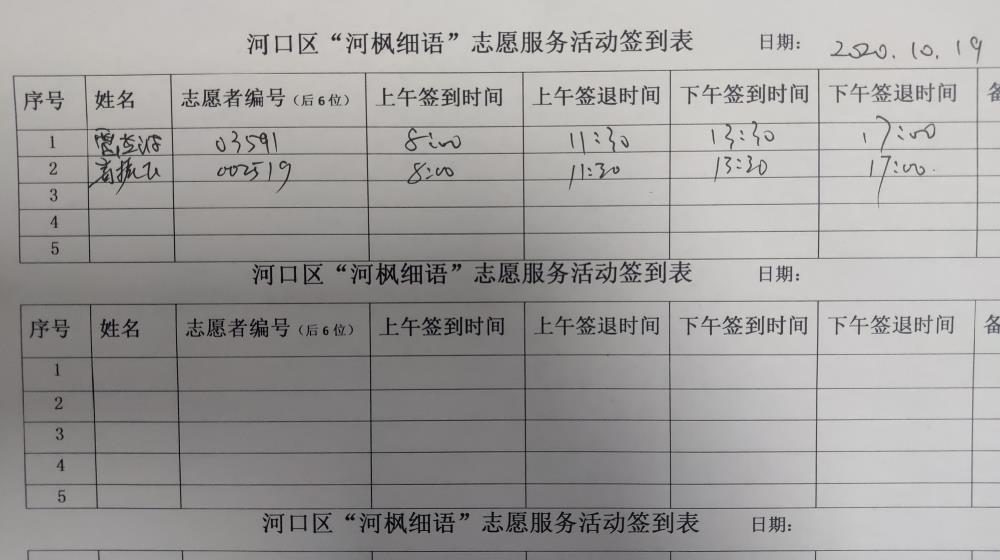 河口区“河枫细语”志愿服务活动签到表 日期： 2020.10.19
序号 姓名 志愿者编号（后6位） 上午签到时间 上午签退时间 下午签到时间 下午签退时间
1 03591 8:00 11:30 13:30 17:00
2 002519 8:00 11:30 13:30 17:00
3
4
5
河口区“河枫细语”志愿服务活动签到表 日期：
序号 姓名 志愿者编号（后6位） 上午签到时间 上午签退时间 下午签到时间 下午签退时间
1
2
3
4
5
河口区“河枫细语”志愿服务活动签到表 日期：